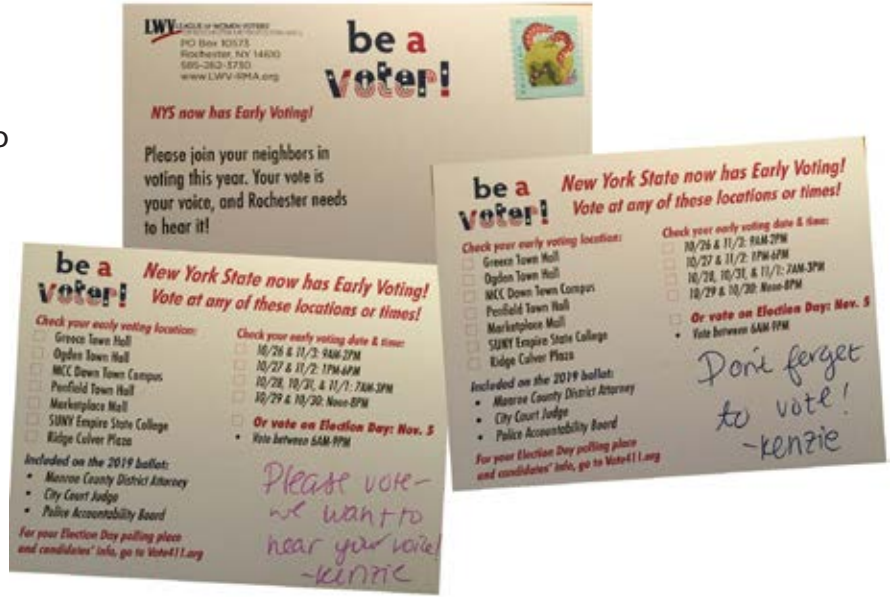 LWV LEAGUE OF WOMEN VOTERS
PO Box 10573
Rochester, NY 14610
585-262-3730
www.LWV-RMA.org
be a
voter!
NYS now has Early Voting!
Please join your neighbors in
voting this year. Your vote is
your voice, and Rochester needs
to hear it!
be a
voter!
New York State now has Early Voting!
Vote at any of these locations or times!
Check your early voting location:
Greece Town Hall
Ogden Town Hall
MCC Down Town Campus
Penfield Town Hall
Marketplace Mall
SUNY Empire State College
Ridge Culver Plaza
Included on the 2019 ballot:
• Monroe County District Attorney
• City Court Judge
• Police Accountability Board
For your Election Day polling place
and candidates' info, go to Vote411.org
Check your early voting date & time:
10/26 & 11/2: 9AM-2PM
10/27 & 11/2: 1PM-6PM
10/28, 10/31, & 11/1: 7AM-3PM
10/29 & 10/30: Noon-8PM
Or vote on Election Day: Nov. 5
• Vote between 6AM-9PM
Don't forget
to vote!
-kenzie
be a
voter!
New York State now has Early Voting!
Vote at any of these locations or times!
Check your early voting location:
Greece Town Hall
Ogden Town Hall
MCC Down Town Campus
Penfield Town Hall
Marketplace Mall
SUNY Empire State College
Ridge Culver Plaza
Included on the 2019 ballot:
• Monroe County District Attorney
• City Court Judge
• Police Accountability Board
For your Election Day polling place
and candidates' info, go to Vote411.org
Check your early voting date & time:
10/26 & 11/3: 9AM-2PM
10/27 & 11/2: 1PM-6PM
10/28, 10/31, & 11/1: 7AM-3PM
10/29 & 10/30: Noon-8PM
Or vote on Election Day: Nov. 5
• Vote between 6AM-9PM
Please vote-
we want to
hear your voice!
-kenzie